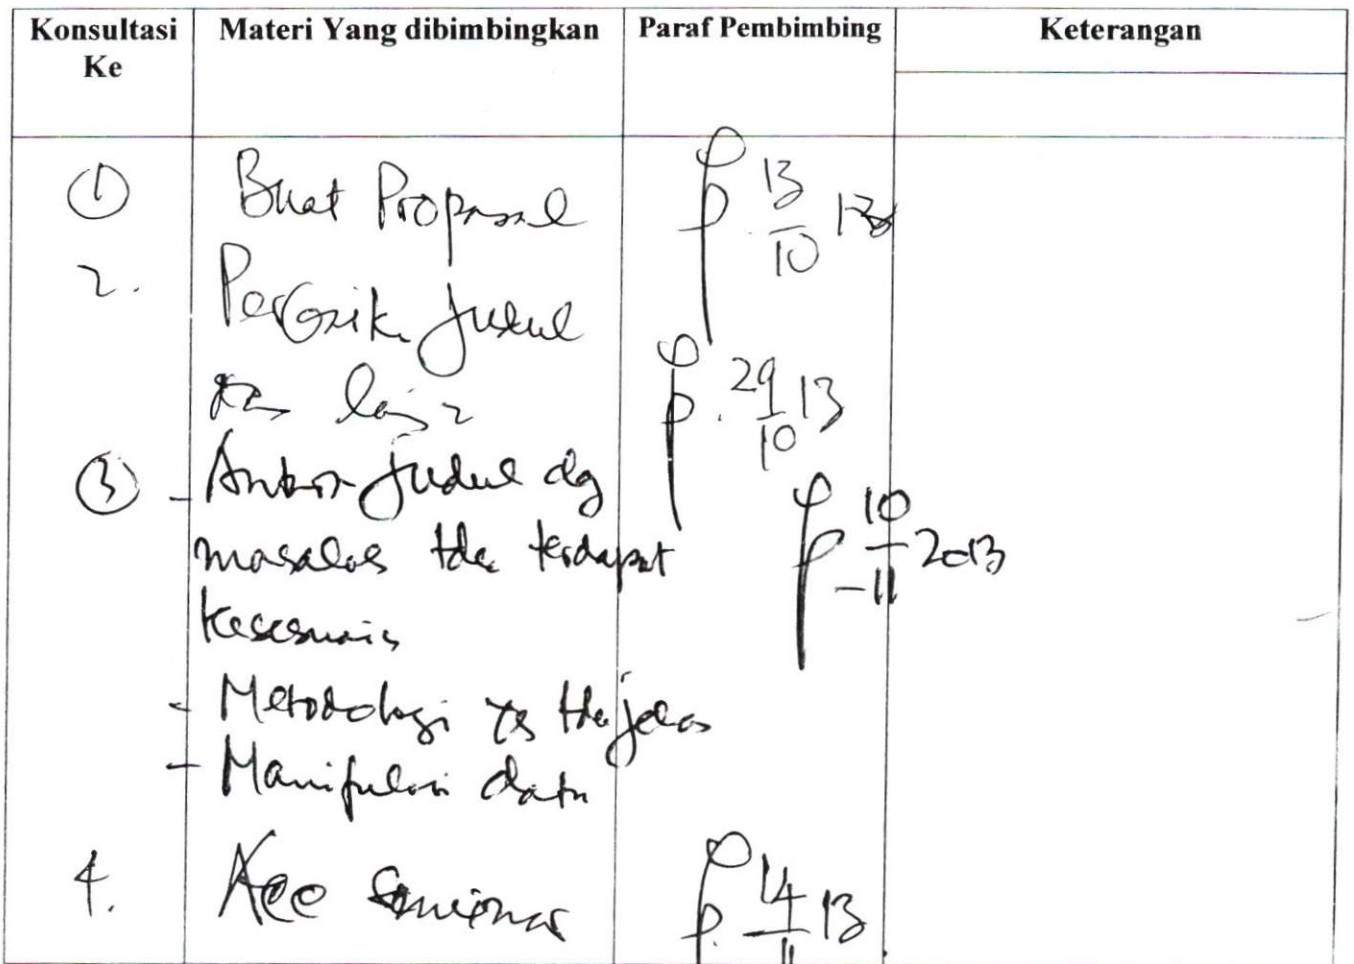 Konsultasi Ke
Materi Yang dibimbingkan
Paraf Pembimbing
Keterangan
① Buat Proposal 13/10 13
2. Perbaiki Judul 29/10 13
dan lain2
③ - Antara Judul dg 10/11 2013
masalah tdk terdapat
kesesuaian
- Metodologi yg tdk jelas
- Manipulasi data
4. Acc Seminar 14/11 13